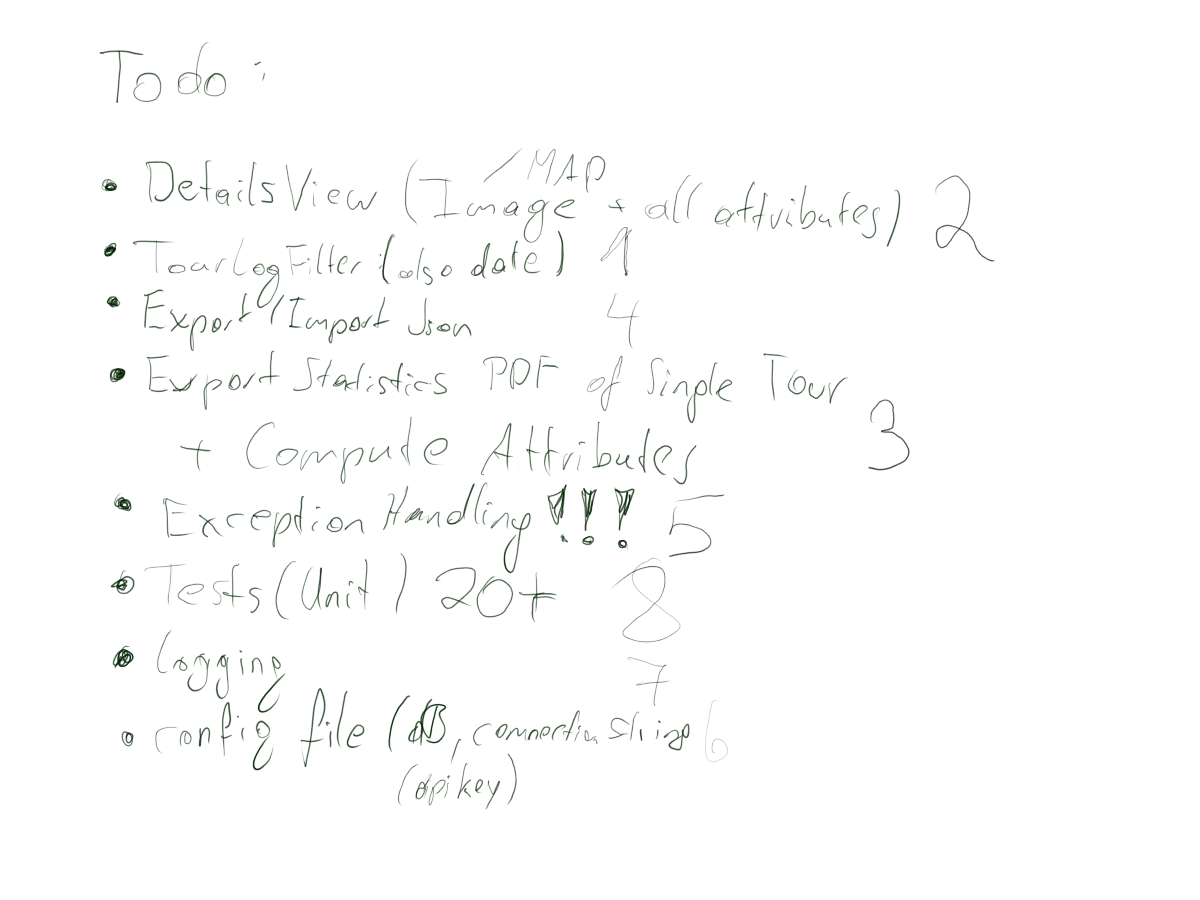 Todo:
• DetailsView (Image /MAP + all attributes) 2
• TourLogFilter (also date) 1
• Export/Import Json 4
• Export Statistics PDF of Single Tour
+ Compute Attributes 3
• Exception Handling !!! 5
• Tests (Unit) 20+ 8
• Logging 7
• config file (dB, connection string 6
(apikey)